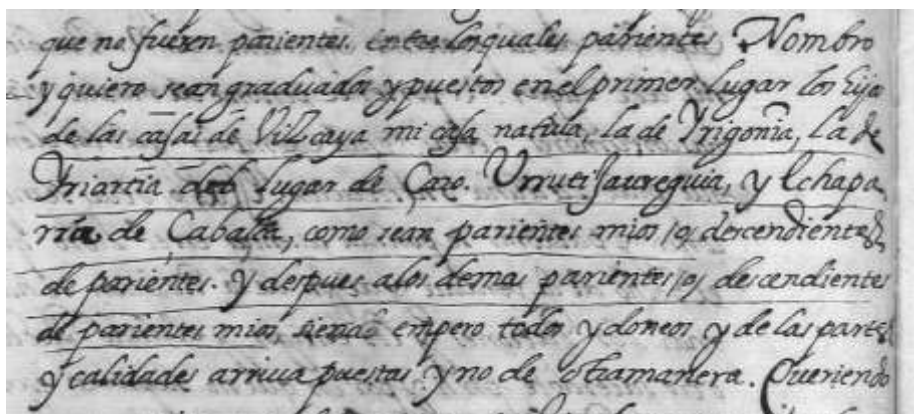 que no fueren parientes. entre los quales parientes. Nombro
y quiero sean graduados y puestos en el primer lugar los hijos
de las casas de Vizcaya mi casa natiua, la de Yrigonia, La de
Yriartia del lugar de Çaro. Urruti Jaureguia, y Echapa
rria de Çabalça, como sean parientes mios, o, descendientes
de parientes. Y despues a los demas parientes, o, descendientes
de parientes mios, siendo empero todos ydoneos y de las partes
y calidades arriua puestas y no de otra manera. Queriendo